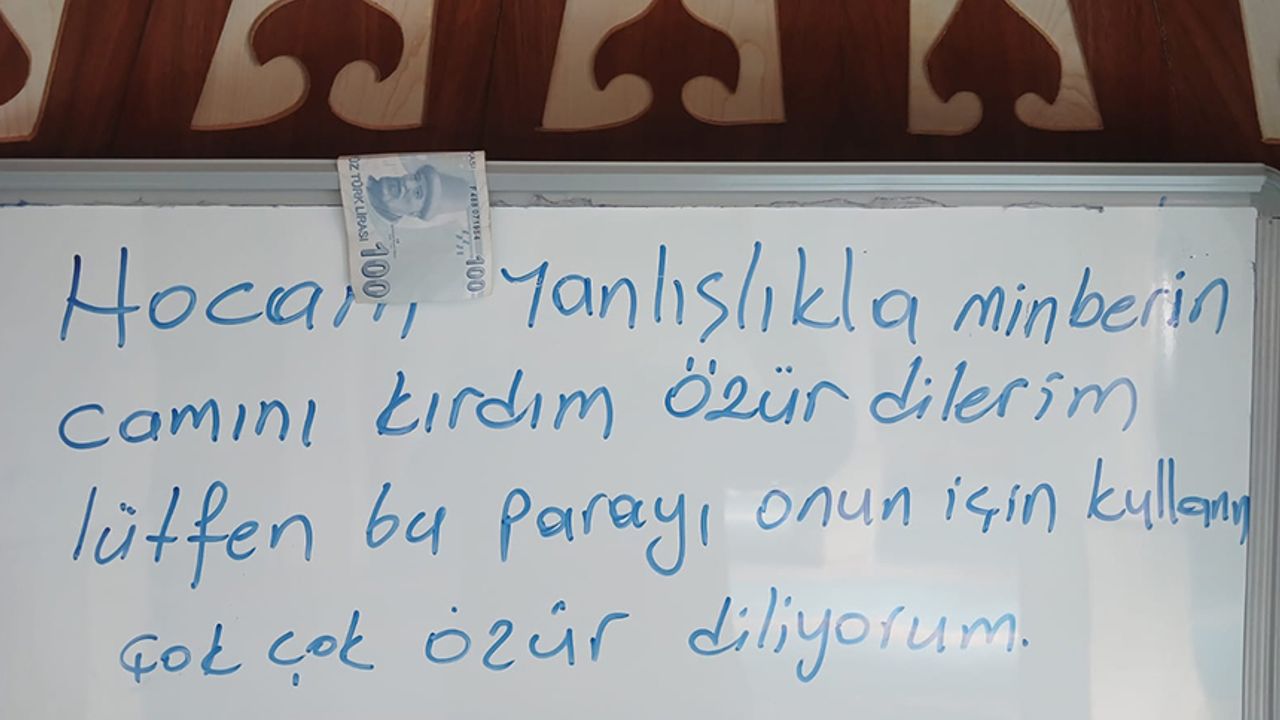 YÜZ TÜRK LİRASI
100
100
Hocam Yanlışlıkla minberin
camını kırdım Özür dilerim
lütfen bu parayı onun için kullanın
çok çok özür diliyorum.